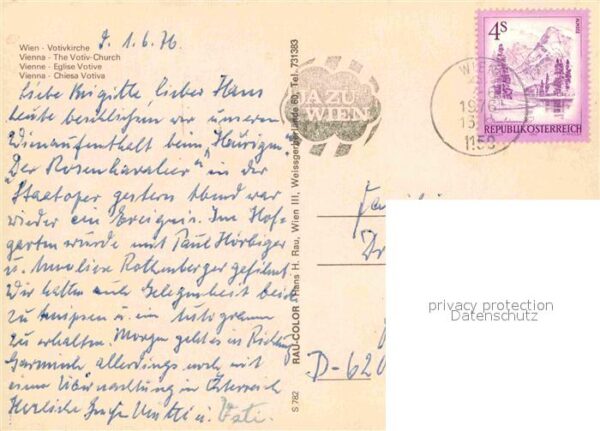 Wien - Votivkirche
Vienna - The Votiv-Church
Vienne - Eglise Votive
Vienna - Chiesa Votiva
1.6.76
Liebe Brigitte, lieber Hans
heute beschliessen wir unseren
Wienaufenthalt beim „Heurigen"
„Der Rosenkavalier" in der
Staatsoper gestern Abend war
wieder ein Ereignis. Im Hof-
garten wurde mit Paul Hörbiger
u. Anneliese Rothenberger gefilmt.
Wir hatten auch Gelegenheit beide
zu knipsen u. ein Autogramm
zu erhalten. Morgen geht es in Richtung
Garmisch allerdings noch mit
einer Übernachtung in Österreich
Herzliche Grüße Mutti u. Vati.
S 782 RAU-COLOR - Hans H. Rau, Wien III, Weissgerberlände 60, Tel. 731383
JA ZU
WIEN
WIEN
1976
1150
4S
REPUBLIK ÖSTERREICH
Fa
Dr
D-620
privacy protection
Datenschutz